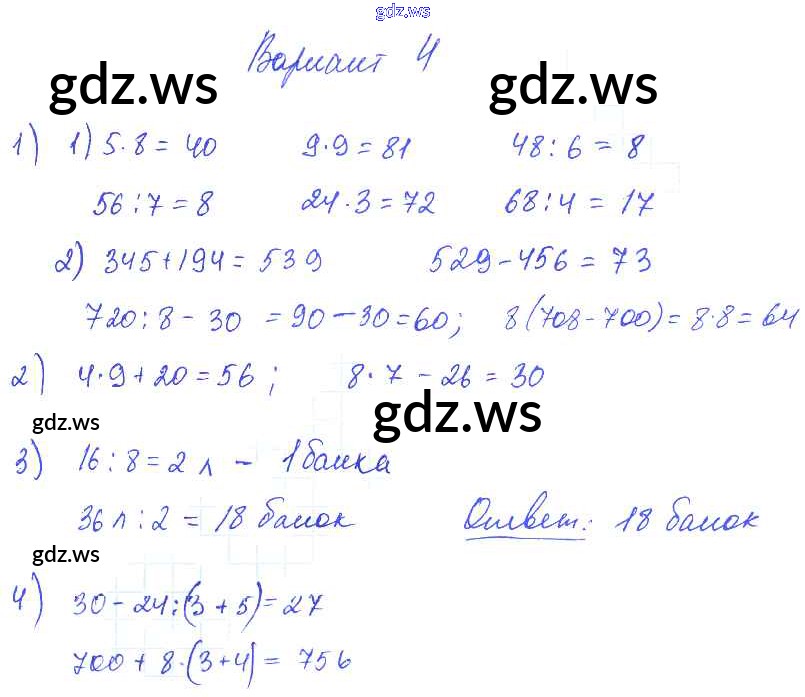 gdz.ws
Вариант 4
gdz.ws gdz.ws
1) 1) 5·8 = 40 9·9 = 81 48 : 6 = 8
56 : 7 = 8 24·3 = 72 68 : 4 = 17
2) 345+194 = 539 529-456 = 73
720 : 8 - 30 = 90 - 30 = 60; 8(708-700) = 8·8 = 64
2) 4·9 + 20 = 56; 8·7 - 26 = 30
gdz.ws gdz.ws
3) 16 : 8 = 2 л - 1 банка
36 л : 2 = 18 банок Ответ: 18 банок
gdz.ws
4) 30 - 24 : (3 + 5) = 27
700 + 8·(3+4) = 756